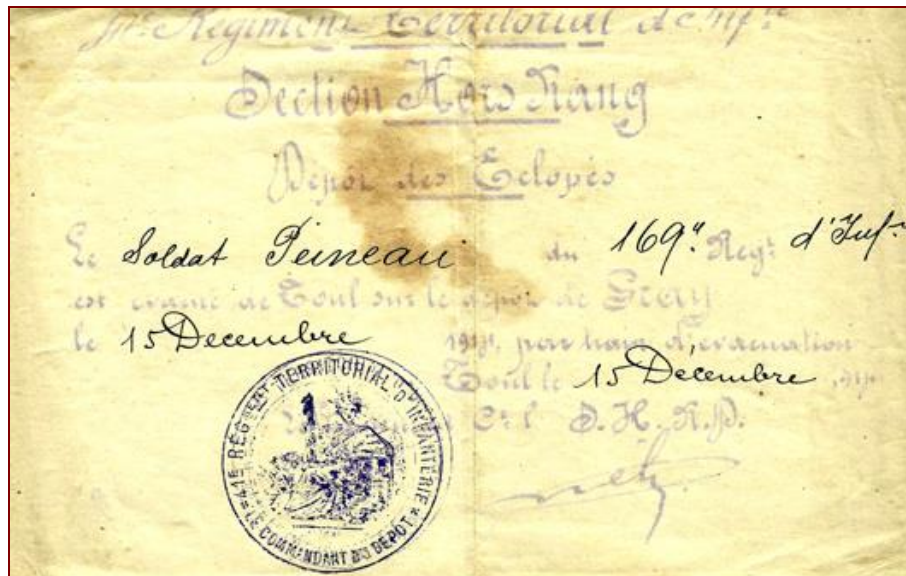 Régiment Territorial d'Inf<sup>ie</sup>
Section Hors Rang
Dépôt des Eclopés
Le Soldat Peineau du 169e Regt d'Inf.
est évacué de Toul sur le dépôt de Gray
le 15 Décembre 1914, par train d'évacuation
Toul le 15 Décembre 1914
Ct S.H.R.
41E RÉGIMENT TERRITORIAL D'INFANTERIE
LE COMMANDANT DU DÉPÔT